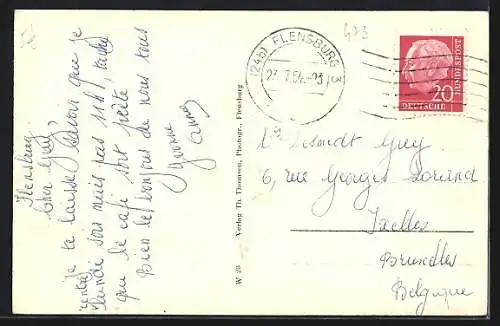 Flensburg
Cher Guy,
je te laisse savoir que je
rentre
lundi soir mais pas sûr, tandis
que le café soit prête
Bien le bonjour de nous tous
Yvonne
W 20 Verlag Th. Thomsen, Photogr., Flensburg
(24b) FLENSBURG
23.7.54.-23
473
20
DEUTSCHE
BUNDESPOST
Desmedt Guy
6, rue Georges Lorand
Ixelles
Bruxelles
Belgique